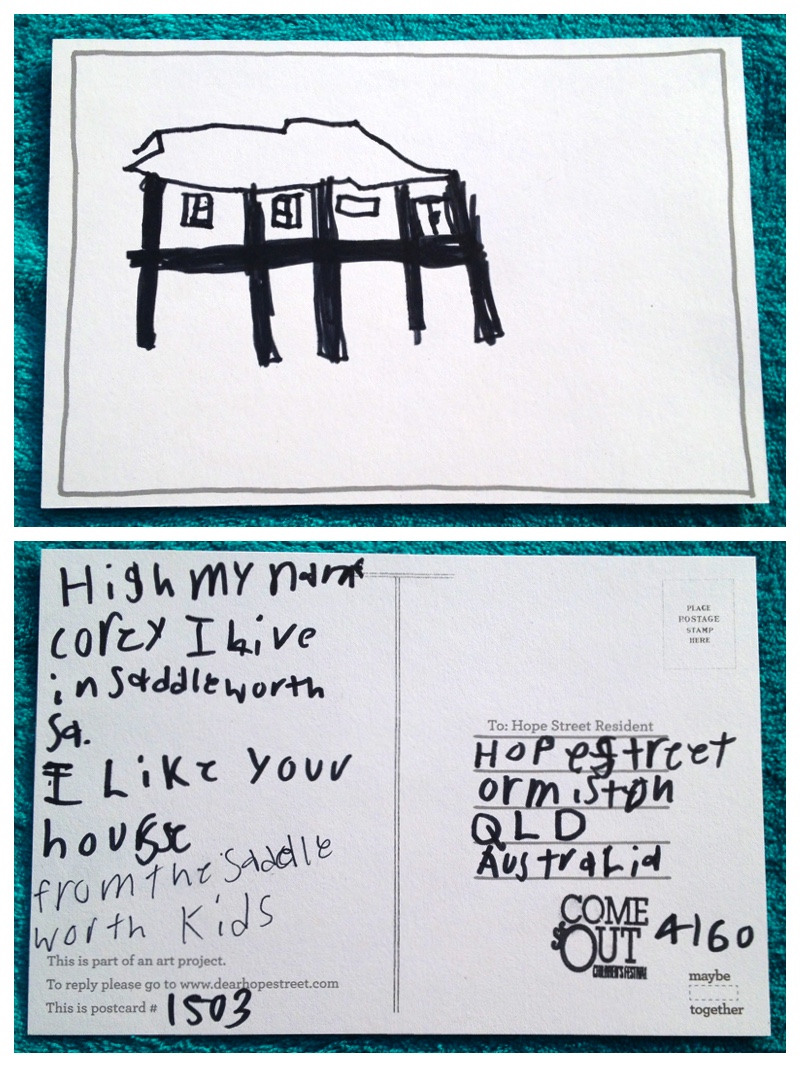 High my name
corey I Live
in Saddleworth
Sa.
I Like your
house
from the Saddle
worth Kids
This is part of an art project.
To reply please go to www.dearhopestreet.com
This is postcard # 1503
PLACE
POSTAGE
STAMP
HERE
To: Hope Street Resident
HOPeStreet
ormiston
QLD
AustraLia
COME
OUT
CHILDREN'S FESTIVAL
4160
maybe
together